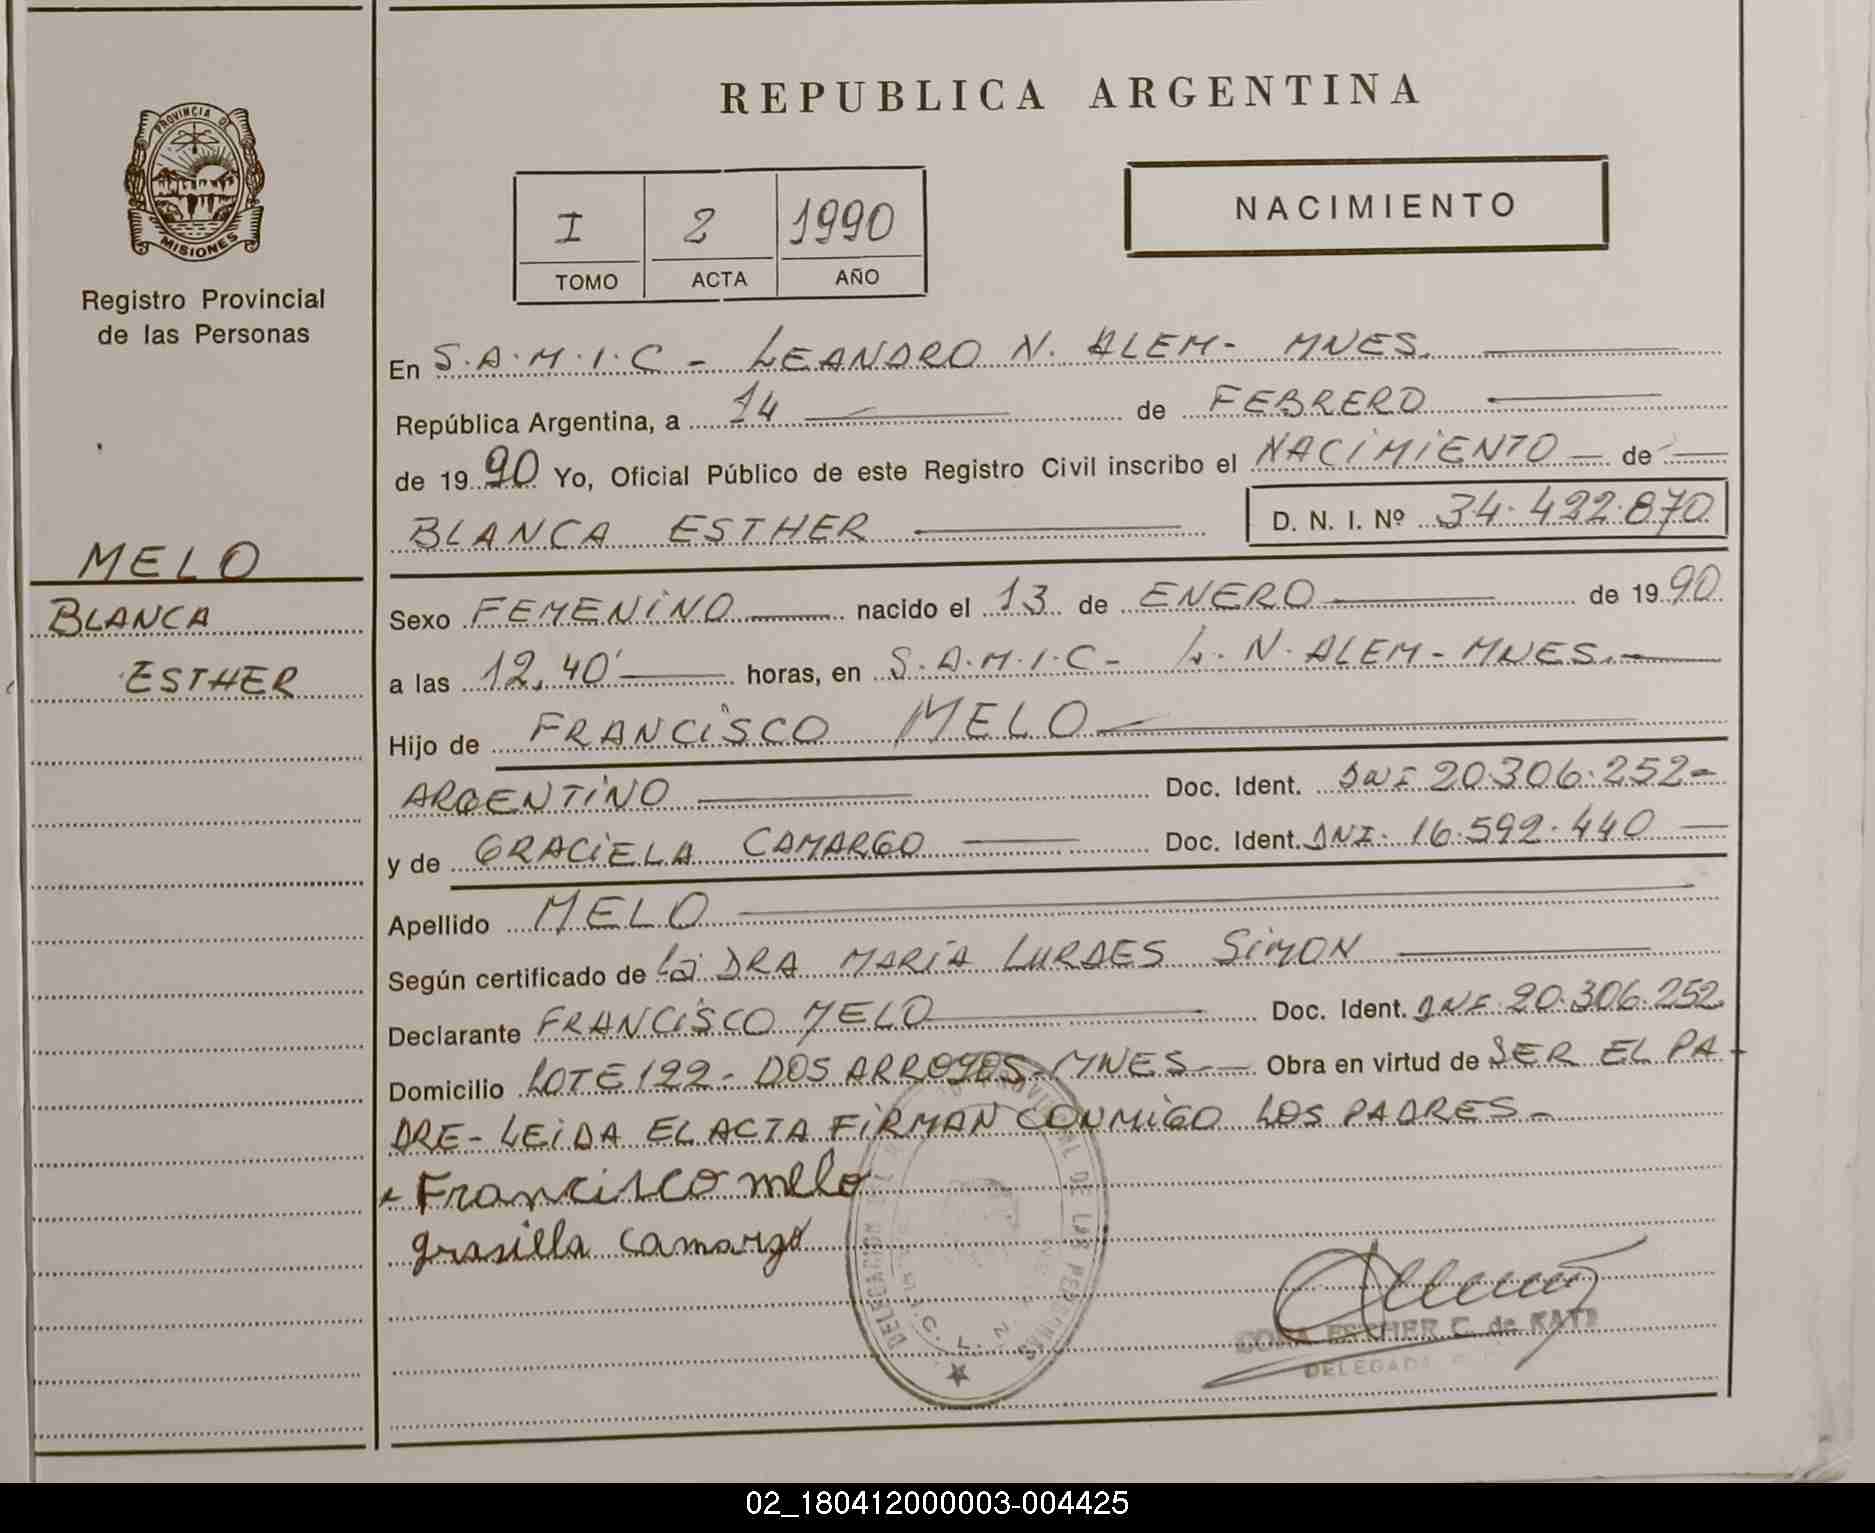 REPUBLICA ARGENTINA
PROVINCIA DE
MISIONES
Registro Provincial
de las Personas
I 2 1990
TOMO ACTA AÑO
NACIMIENTO
MELO
BLANCA
ESTHER
En S.A.M.I.C - LEANDRO N. ALEM - MNES.
República Argentina, a 14 de FEBRERO
de 1990 Yo, Oficial Público de este Registro Civil inscribo el NACIMIENTO de
BLANCA ESTHER D. N. I. Nº 34.422.870
Sexo FEMENINO nacido el 13 de ENERO de 1990
a las 12,40 horas, en S.A.M.I.C - L. N. ALEM - MNES.-
Hijo de FRANCISCO MELO
ARGENTINO Doc. Ident. DNI 20.306.252-
y de GRACIELA CAMARGO Doc. Ident. DNI. 16.592.440
Apellido MELO
Según certificado de La DRA MARIA LURDES SIMON
Declarante FRANCISCO MELO Doc. Ident. DNI 20.306.252
Domicilio LOTE 122 - DOS ARROYOS - MNES - Obra en virtud de SER EL PA
DRE - LEIDA EL ACTA FIRMAN CONMIGO LOS PADRES -
Francisco melo
grasiella camargo
DELEGACION DE LAS PERSONAS
ESTHER C. de KATZ
DELEGADA
02_180412000003-004425